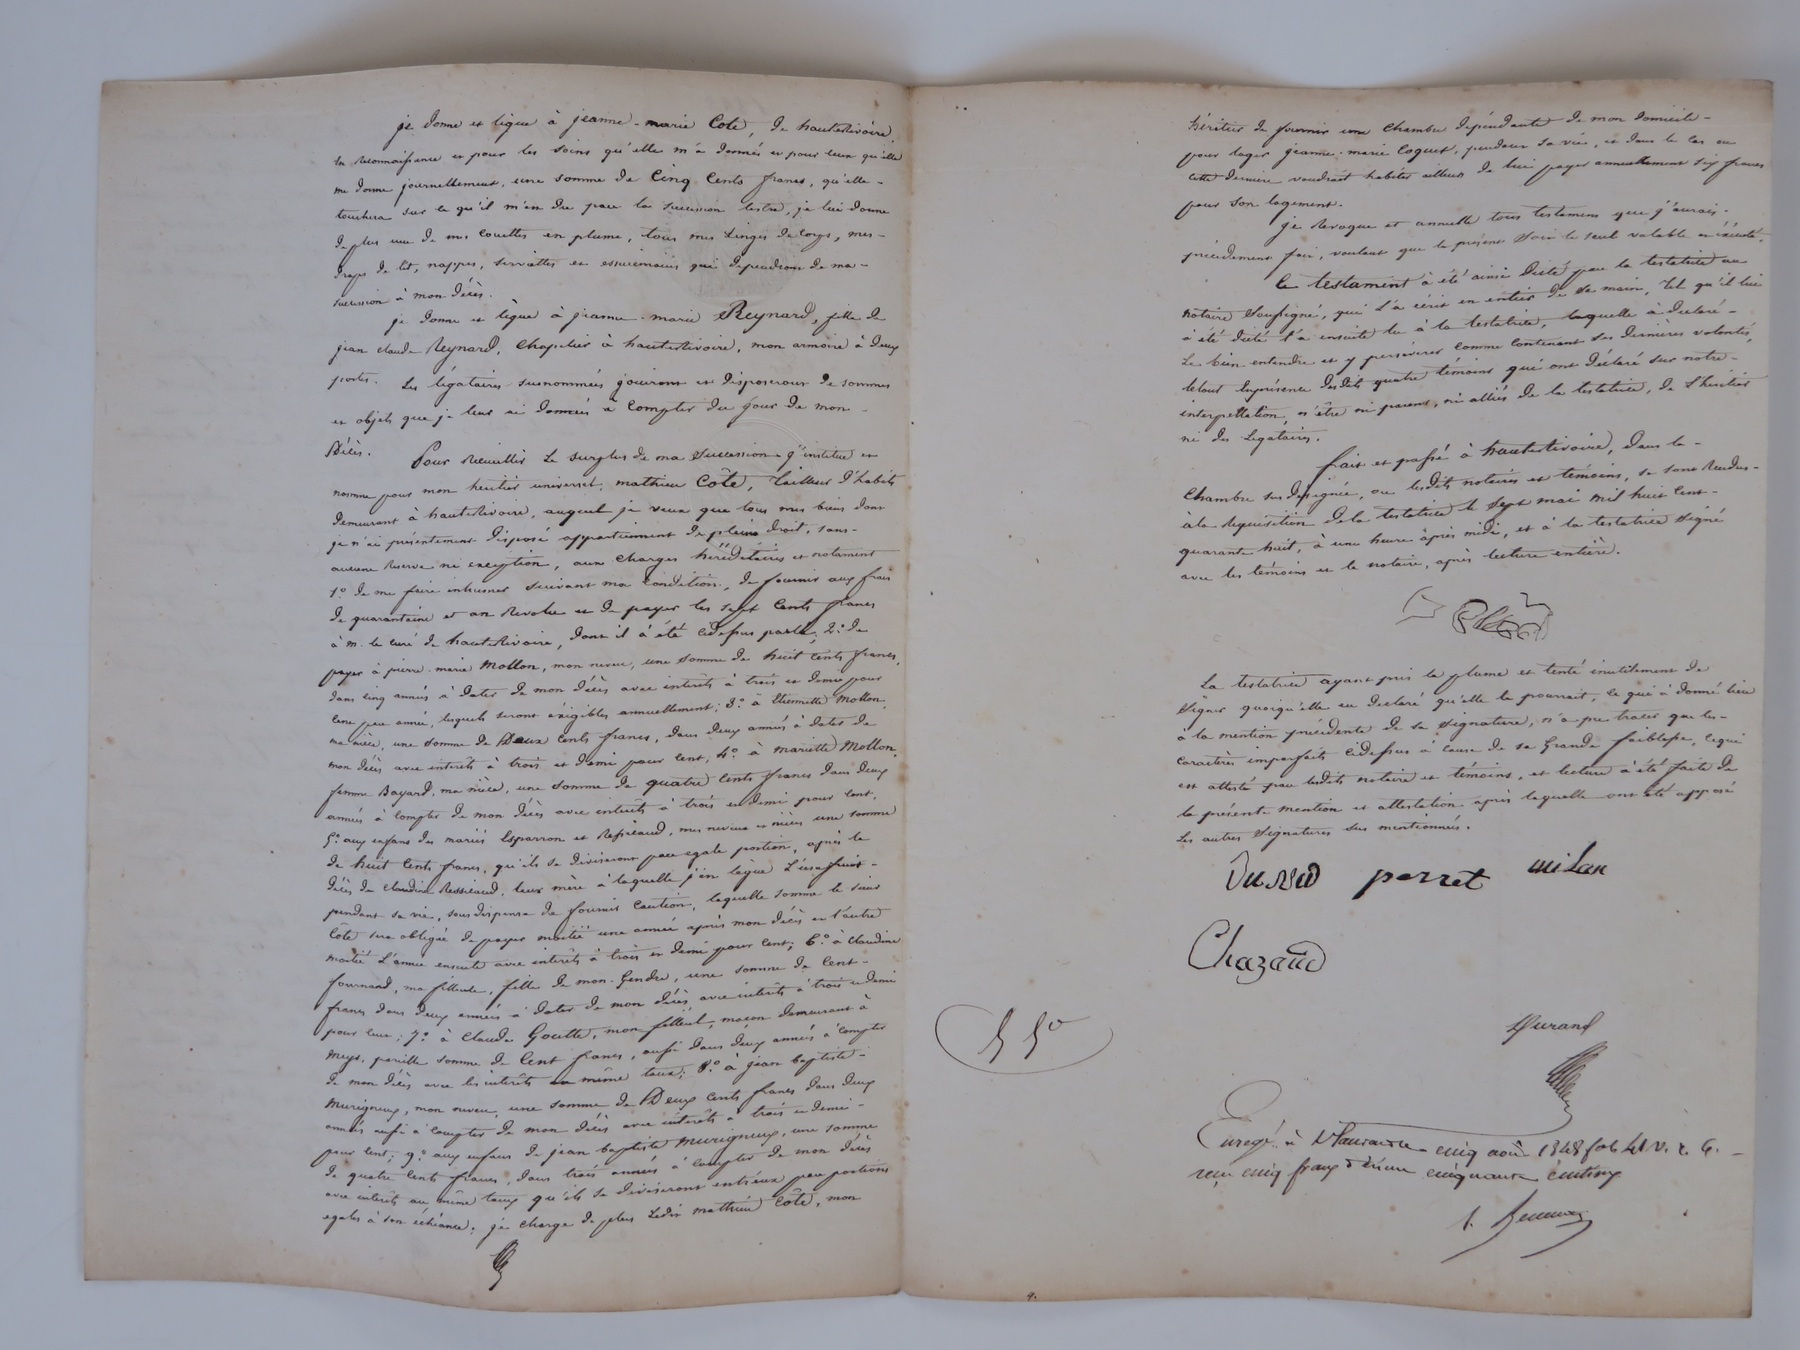 je donne et lègue à jeanne-marie Cote, de hauterivoire
en reconnaissance et pour les soins qu'elle m'a donnés et pour ceux qu'elle
me donne journellement, une somme de Cinq Cents francs, qu'elle-
touchera sur ce qu'il m'en du par la succession je lui donne
de plus une de mes Couettes en plume, tous mes Linges de Corps, mes-
draps de lit, nappes, serviettes et essuiemains qui dependront de ma-
succession à mon décès.
je donne et lègue à jeanne-marie Reynard, fille de
jean claude Reynard, Chapelier à hauterivoire, mon armoire à deux
portes. Les légataires susnommées jouiront et disposeront de sommes
et objets que je leur ai donnés à Compter du jour de mon-
Décès.
Pour recueillir Le surplus de ma Succession j'institue et
nomme pour mon heritier universel, mathieu Côte, Tailleur d'habits
demeurant à hauterivoire, auquel je veux que tous mes biens dont
je n'ai présentement disposé appartiennent de pleins droit, sans-
aucune reserve ni exception, aux charges héréditaires et notament
1º. de me faire inhumer suivant ma Condition, de fournir aux frais
de quarantaine et an Revolu et de payer les sept Cents francs
à m. le curé de hauterivoire, dont il à été cidessus parlé, 2º. de
payer à pierre-marie Mollon, mon neveu, une somme de huit Cents francs,
dans cinq années à dater de mon décès avec intérêts à trois et demi pour
Cent par année, lesquels seront exigibles annuellement; 3.º à Etiennette Mollon,
ma nièce, une somme de Deux Cents francs, dans deux années à dater de
mon décès avec interêts à trois et demi pour Cent; 4.º à mariette Mollon,
femme Bayard, ma nièce, une somme de quatre Cents francs dans deux
années à compter de mon décès avec intérêts à trois et demi pour Cent,
5.º aux enfans des mariés Esparron et Ressicaud, mes neveux et nièces une somme
de huit Cents francs, qu'ils se diviseront par egale portion, après le
décès de Claudine Ressicaud, leur mère à laquelle j'en lègue L'usufruit-
pendant sa vie, sous dispense de fournir Caution, laquelle somme le sieur
Côte sera obligée de payer moitié une année après mon décès et l'autre
moitié L'année ensuite avec intérêts à trois et demi pour Cent; 6.º à Claudine
fournand, ma filleule, fille de mon Gendre, une somme de Cent-
francs dans deux années à dater de mon décès avec intérêts à trois et demi
pour Cent; 7.º à Claude Goutte, mon filleul, maçon demeurant à
Meys, pareille somme de Cent francs, aussi dans deux années à compter
de mon décès avec les intérêts au même taux; 8.º à jean baptiste-
Murigneux, mon neveu, une somme de Deux Cents francs dans deux
années aussi à compter de mon décès avec intérêts à trois et demi-
pour Cent; 9.º aux enfans de jean baptiste Murigneux, une somme
de quatre Cents francs, dans trois années à Compter de mon décès
avec intérêts au même taux qu'ils se diviseront entr'eux par portions
egales à son échéance; je charge de plus Ledit mathieu Côte, mon
héritier de fournir une Chambre dépendante de mon domicile-
pour loger jeanne-marie Coquet, pendant sa vie, et dans le cas ou
cette dernière voudrait habiter ailleurs de lui payer annuellement six francs
pour son logement.
je Revoque et annulle tous testamens que j'aurais-
précédemment fait, voulant que le présent soit le seul valable et exécuté.
Ce testament à été ainsi dicté par la testatrice au
notaire soussigné, qui L'à écrit en entier de sa main, Tel qu'il lui
à été dicté l'à ensuite lu à la testatrice, laquelle à déclaré-
Le bien entendre et y persévérer comme Contenant ses dernières volontés,
letout Enprésence desdits quatre témoins qui ont déclaré sur notre-
interpellation, n'être ni parens, ni alliés de la testatrice, de L'héritier
ni des Legataires.
fait et passé à hauterivoire, dans la-
Chambre sus désignée, ou lesdits notaires et témoins, se sont Rendus-
àla Requisition dela testatrice le sept mai mil huit Cent-
quarante huit, à une heure après midi, et à la testatrice signé
avec les témoins et le notaire, après lecture entière.
La testatrice ayant pris la plume et tenté inutilement de
signer quoiqu'elle eu déclaré qu'elle le pourrait, ce qui à donné lieu
à la mention précédente de sa signature, n'a pu tracer que les-
caractères imparfaits cidessus à cause de sa Grande faiblesse, cequi
est attesté par lesdits notaire et témoins, et lecture à été faite de
la présente mention et attestation après laquelle ont été apposé
Les autres Signatures sus mentionnés.
perret milan
Chazaud
Durand
Enregé. à St Laurent le cinq août 1848 fol. 41 V. c. 6.
reçu cinq francs dixième cinquante centimes